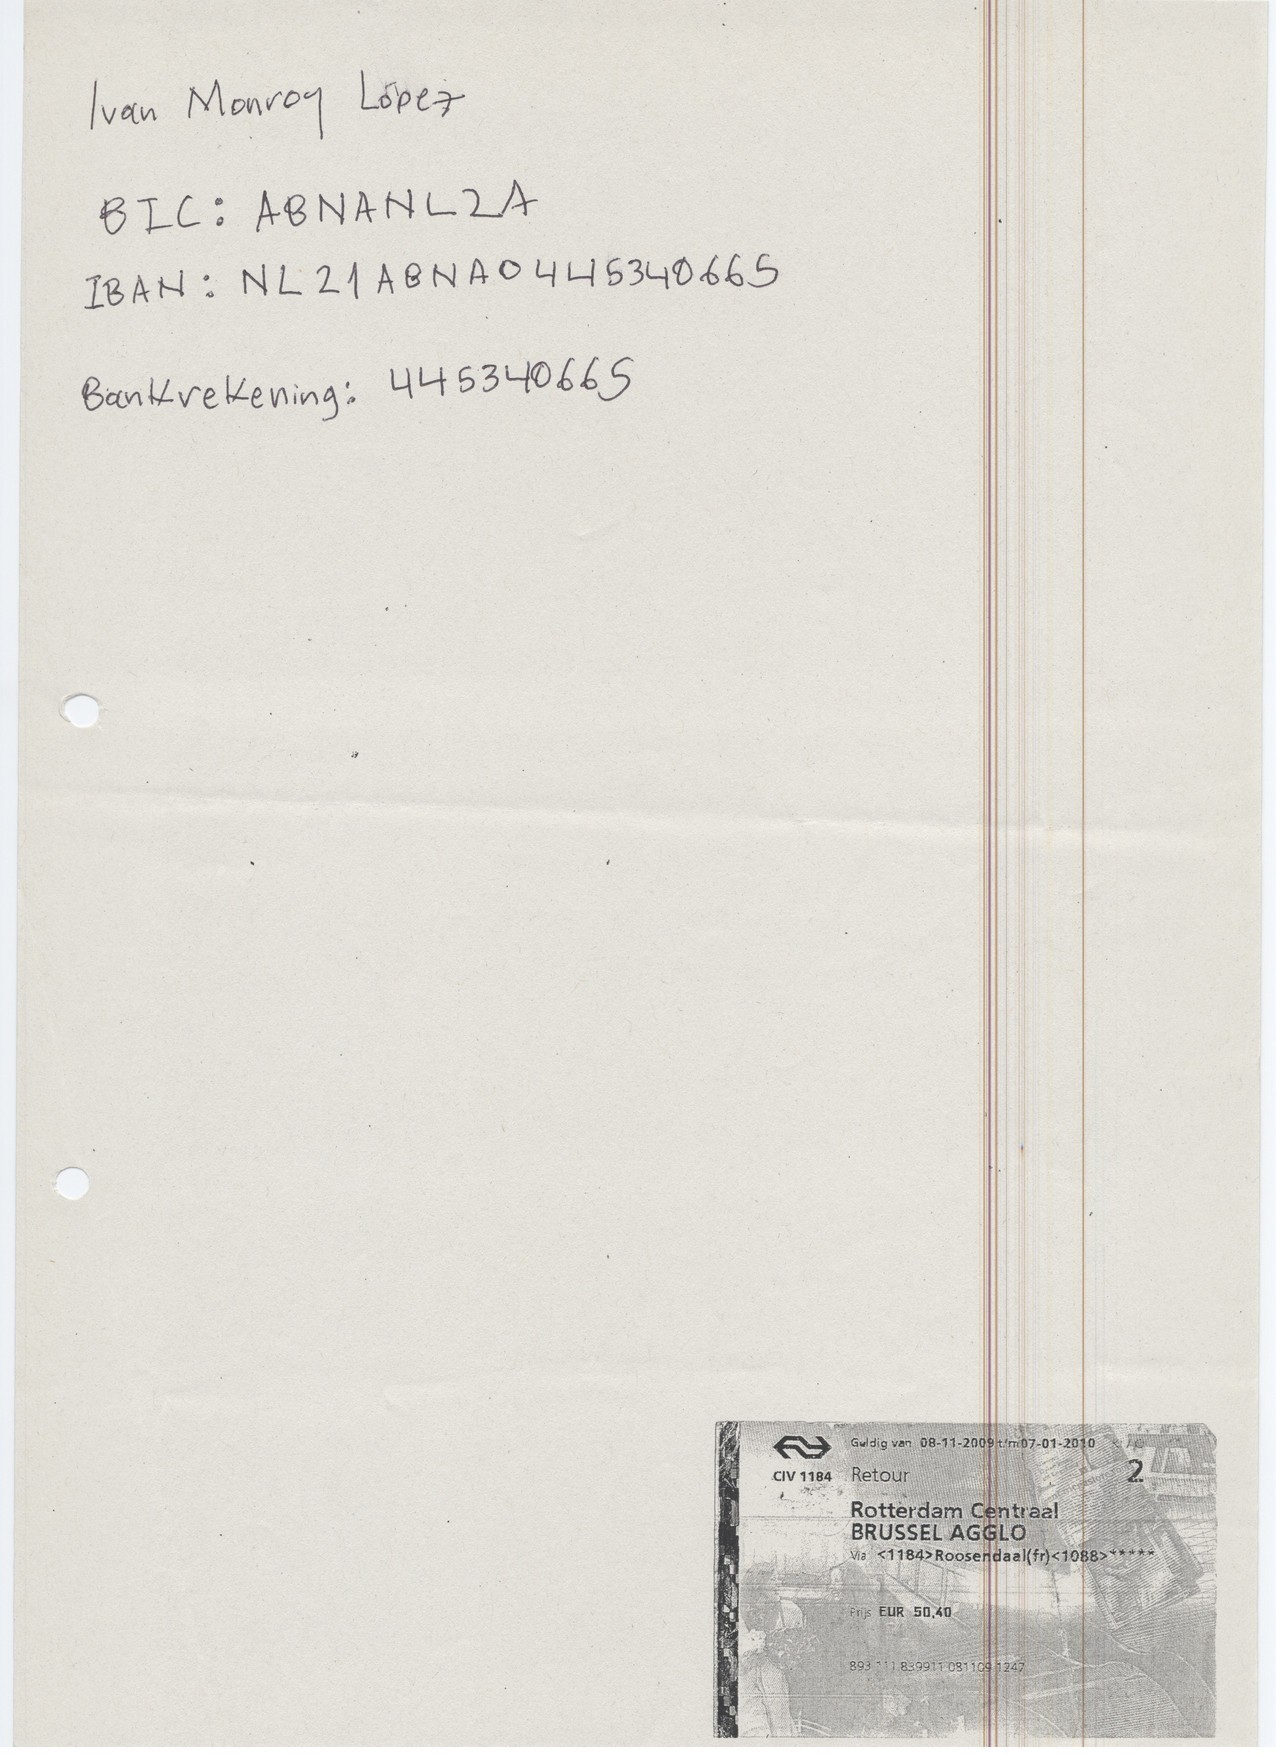 Ivan Monroy López
BIC: ABNANL2A
IBAN: NL21ABNA0445340665
Bankrekening: 445340665
Geldig van 08-11-2009 t/m 07-01-2010
CIV 1184 Retour 2
Rotterdam Centraal
BRUSSEL AGGLO
Via <1184>Roosendaal(fr)<1088>*****
Prijs EUR 50,40
839911 081109 1247